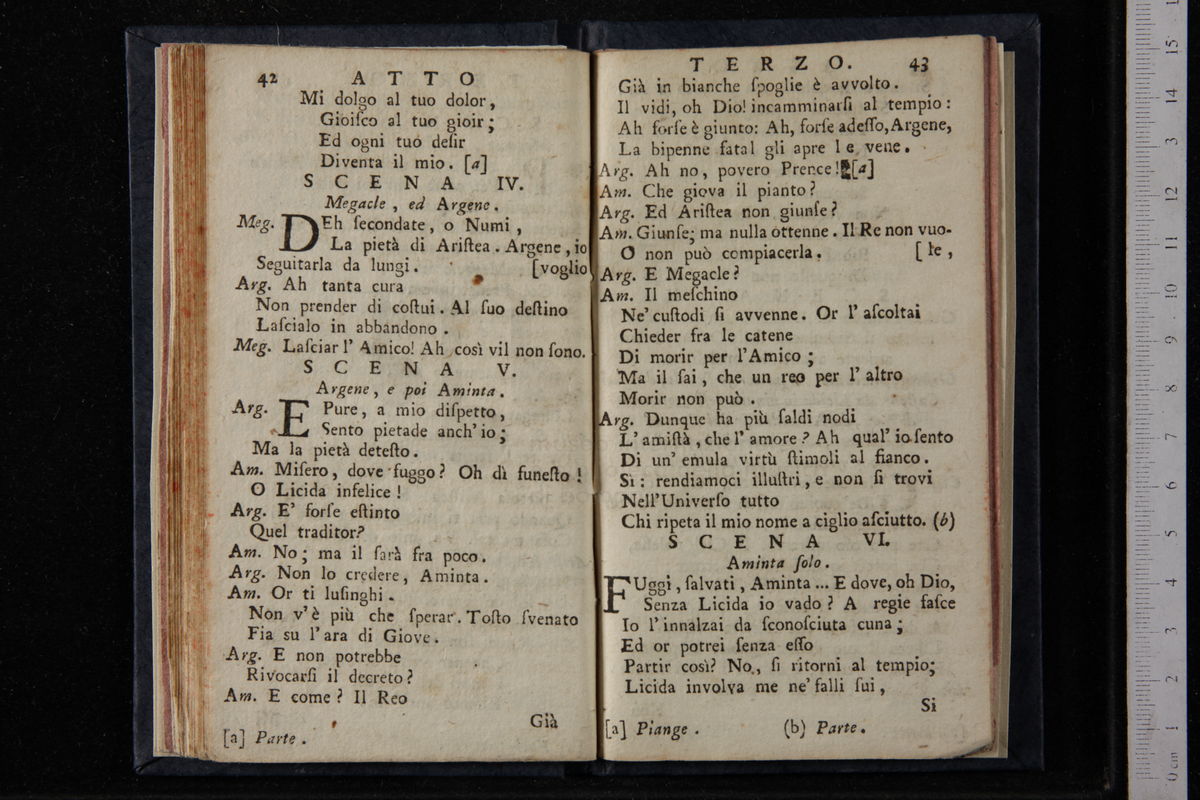 42 A T T O
Mi dolgo al tuo dolor,
Gioiſco al tuo gioir;
Ed ogni tuo deſir
Diventa il mio. [a]
S C E N A IV.
Megacle, ed Argene.
Meg. DEh ſecondate, o Numi,
La pietà di Ariſtea. Argene, io
Seguitarla da lungi. [voglio
Arg. Ah tanta cura
Non prender di coſtui. Al ſuo deſtino
Laſcialo in abbandono.
Meg. Laſciar l' Amico! Ah così vil non ſono.
S C E N A V.
Argene, e poi Aminta.
Arg. E Pure, a mio diſpetto,
Sento pietade anch' io;
Ma la pietà deteſto.
Am. Miſero, dove fuggo? Oh dì funeſto!
O Licida infelice!
Arg. E' forſe eſtinto
Quel traditor?
Am. No; ma il ſarà fra poco.
Arg. Non lo credere, Aminta.
Am. Or ti luſinghi.
Non v' è più che ſperar. Toſto ſvenato
Fia su l' ara di Giove.
Arg. E non potrebbe
Rivocarſi il decreto?
Am. E come? Il Reo
Già
[a] Parte.
T E R Z O. 43
Già in bianche ſpoglie è avvolto.
Il vidi, oh Dio! incamminarſi al tempio:
Ah forſe è giunto: Ah, forſe adeſſo, Argene,
La bipenne fatal gli apre le vene.
Arg. Ah no, povero Prence! [a]
Am. Che giova il pianto?
Arg. Ed Ariſtea non giunſe?
Am. Giunſe; ma nulla ottenne. Il Re non vuo-
O non può compiacerla. [le,
Arg. E Megacle?
Am. Il meſchino
Ne' cuſtodi ſi avvenne. Or l' aſcoltai
Chieder fra le catene
Di morir per l' Amico;
Ma il ſai, che un reo per l' altro
Morir non può.
Arg. Dunque ha più ſaldi nodi
L' amiſtà, che l' amore? Ah qual' io ſento
Di un' emula virtù ſtimoli al fianco.
Sì: rendiamoci illuſtri, e non ſi trovi
Nell' Univerſo tutto
Chi ripeta il mio nome a ciglio aſciutto. (b)
S C E N A VI.
Aminta ſolo.
FUggi, ſalvati, Aminta... E dove, oh Dio,
Senza Licida io vado? A regie faſce
Io l' innalzai da ſconoſciuta cuna;
Ed or potrei ſenza eſſo
Partir così? No, ſi ritorni al tempio;
Licida involva me ne' falli ſui,
Si
[a] Piange. (b) Parte.
0 cm 1 2 3 4 5 6 7 8 9 10 11 12 13 14 15